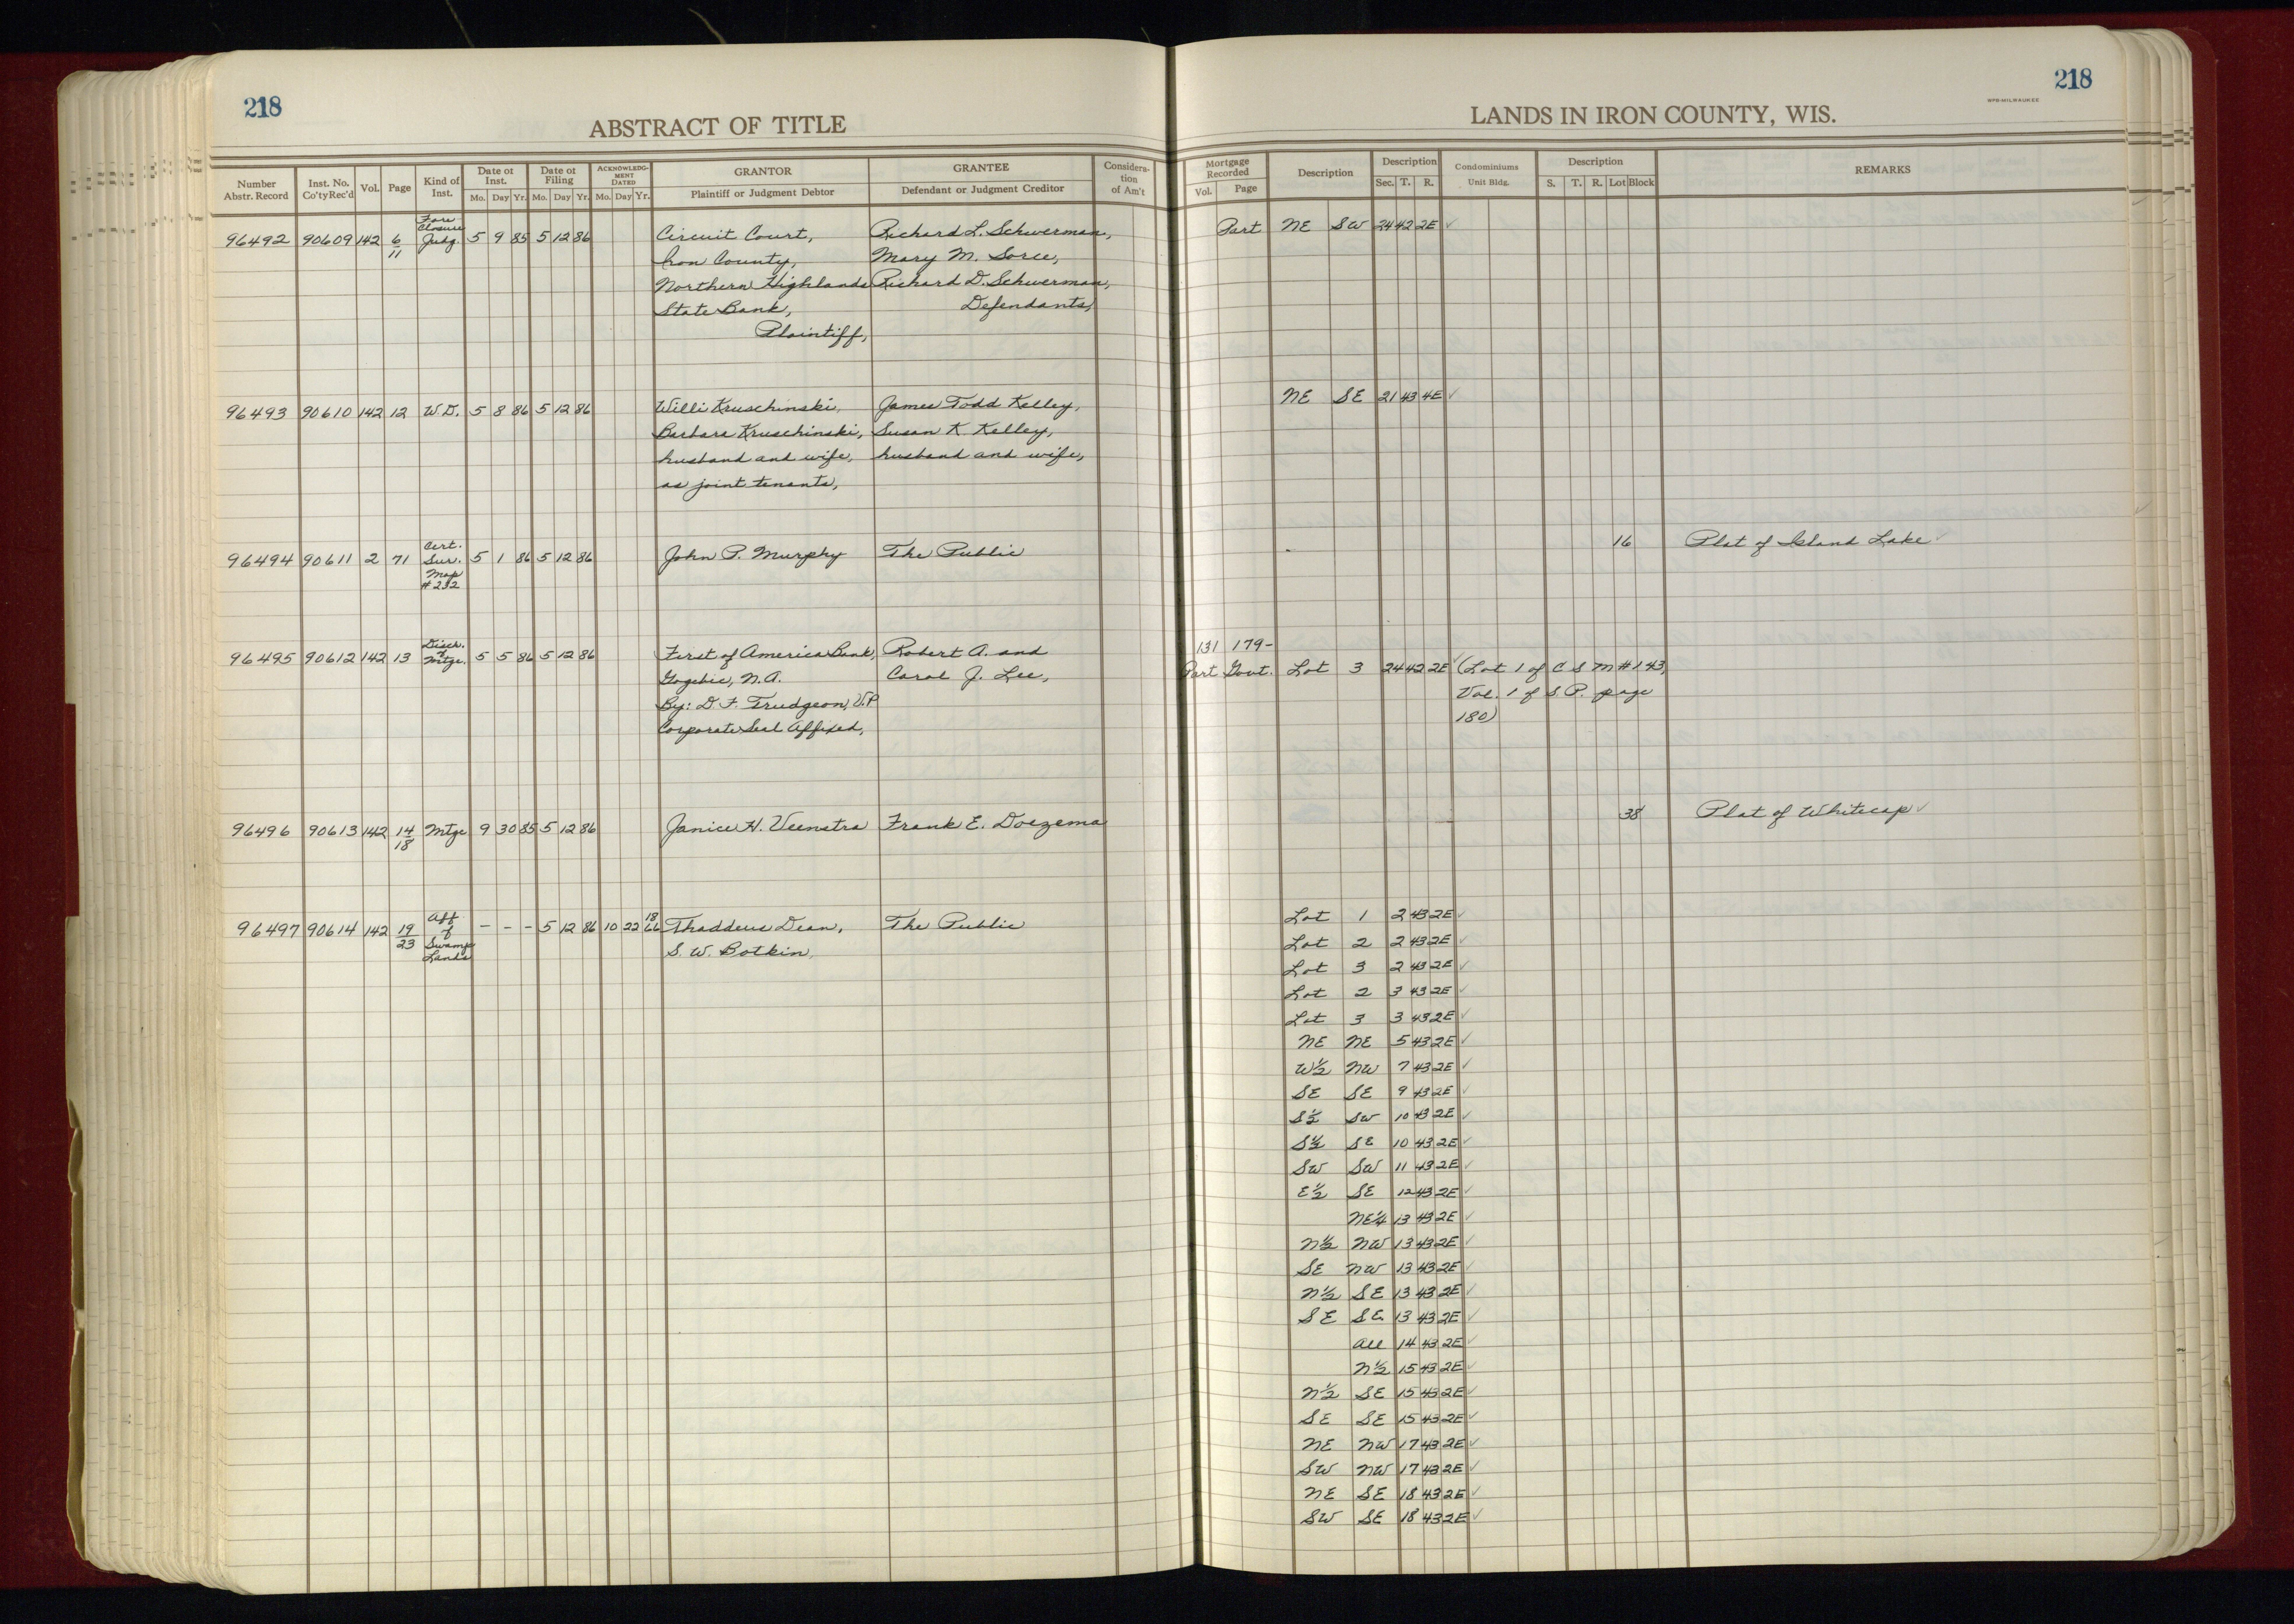 218
ABSTRACT OF TITLE
Number Abstr. Record
Inst. No. Co'ty Rec'd
Vol.
Page
Kind of Inst.
Date of Inst.
Mo. Day Yr.
Date of Filing
Mo. Day Yr.
ACKNOWLEDGMENT DATED
Mo. Day Yr.
GRANTOR
Plaintiff or Judgment Debtor
GRANTEE
Defendant or Judgment Creditor
Consideration of Am't
96492 90609 142 6/11 Fore Closure Judg. 5 9 85 5 12 86 Circuit Court, Richard L. Schwerman,
Iron County, Mary M. Sorce,
Northern Highlands Richard D. Schwerman,
State Bank, Defendants,
Plaintiff,
96493 90610 142 12 W.D. 5 8 86 5 12 86 Willi Kruschinski, James Todd Kelley,
Barbara Kruschinski, Susan K Kelley,
husband and wife, husband and wife,
as joint tenants,
96494 90611 2 71 Cert. Sur. Map #232 5 1 86 5 12 86 John P. Murphy The Public
96495 90612 142 13 Disch. of Mtge. 5 5 86 5 12 86 First of America Bank, Robert A. and
Gogebic, N.A. Carol J. Lee,
By: D. F. Trudgeon, V.P.
Corporate Seal Affixed,
96496 90613 142 14/18 Mtge 9 30 85 5 12 86 Janice H. Veenstra Frank E. Doezema
96497 90614 142 19/23 Aff of Swamp Lands - - - 5 12 86 10 22 1866 Thaddeus Dean, The Public
S. W. Botkin,
218
WPB-MILWAUKEE
LANDS IN IRON COUNTY, WIS.
Mortgage Recorded
Vol. Page
Description
Description
Sec. T. R.
Condominiums
Unit Bldg.
Description
S. T. R. Lot Block
REMARKS
Part NE SW 24 42 2E ✓
NE SE 21 43 4E ✓
16 Plat of Island Lake ✓
131 179-
Part Govt. Lot 3 24 42 2E ✓ (Lot 1 of C S M #143,
Vol. 1 of S. P. page
180)
38 Plat of Whitecap ✓
Lot 1 2 43 2E ✓
Lot 2 2 43 2E ✓
Lot 3 2 43 2E ✓
Lot 2 3 43 2E ✓
Lot 3 3 43 2E ✓
NE NE 5 43 2E ✓
W½ NW 7 43 2E ✓
SE SE 9 43 2E ✓
S½ SW 10 43 2E ✓
S½ SE 10 43 2E ✓
SW SW 11 43 2E ✓
E½ SE 12 43 2E ✓
NE¼ 13 43 2E ✓
N½ NW 13 43 2E ✓
SE NW 13 43 2E ✓
N½ SE 13 43 2E ✓
SE SE 13 43 2E ✓
All 14 43 2E ✓
N½ 15 43 2E ✓
N½ SE 15 43 2E ✓
SE SE 15 43 2E ✓
NE NW 17 43 2E ✓
SW NW 17 43 2E ✓
NE SE 18 43 2E ✓
SW SE 18 43 2E ✓